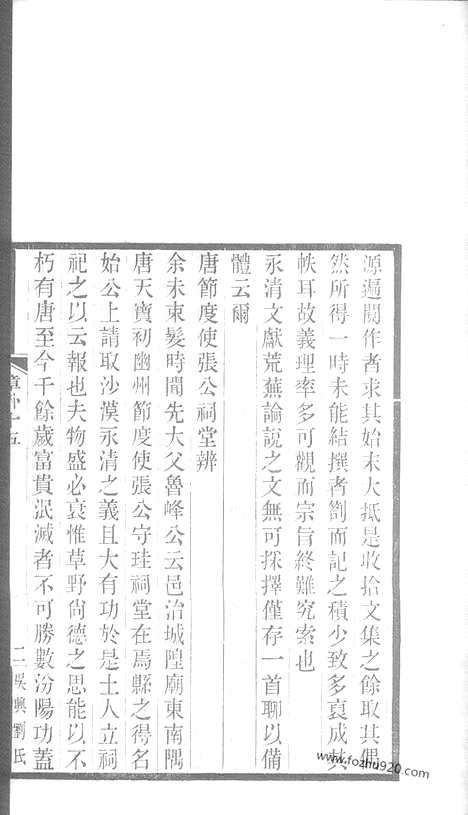 源遍閱作者求其始末大抵是收拾文集之餘取其偶
然所得一時未能結撰者劄而記之積少致多裒成其
帙耳故義理率多可觀而宗旨終難究索也
永清文獻荒蕪論說之文無可採擇僅存一首聊以備
體云爾
唐節度使張公祠堂辨
余未束髮時聞先大父魯峰公云邑治城隍廟東南隅
唐天寶初幽州節度使張公守珪祠堂在焉縣之得名
始公上請取沙漠永清之義且大有功於是土人立祠
祀之以云報也夫物盛必衰惟草野尙德之思能以不
朽有唐至今千餘歲富貴泯滅者不可勝數汾陽功蓋
章外十五
二
吳興劉氏
www.fozhu920.com